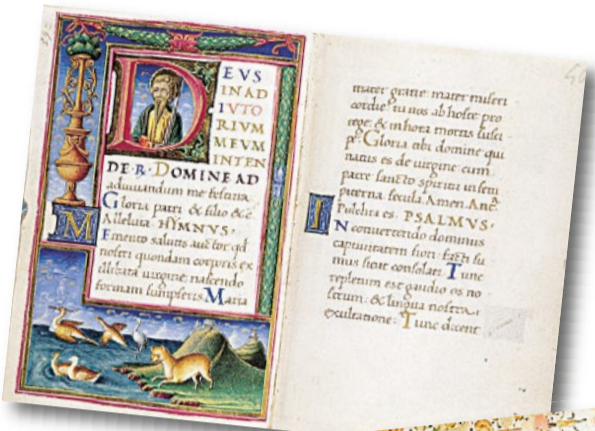 DEVS
IN AD
IVTO
RIVM
MEVM
INTEN
DE·R·DOMINE AD
adiuuandum me festina
Gloria patri & filio &c
Alleluia HYMNVS,
MEmento salutis auctor qd
nostri quondam corporis ex
illibata uirgine nascendo
formam sumpseris Maria
mater gratie mater miseri
cordie tu nos ab hoste pro
tege & in hora mortis susci
pe Gloria tibi domine qui
natus es de uirgine cum
patre sancto spiritu in semi
piterna secula Amen Anĉ
Pulchra es PSALMVS,
IN conuertendo dominus
captiuitatem sion facti su
mus sicut consolati Tunc
repletum est gaudio os no
strum & lingua nostra
exultatione Tunc dicent